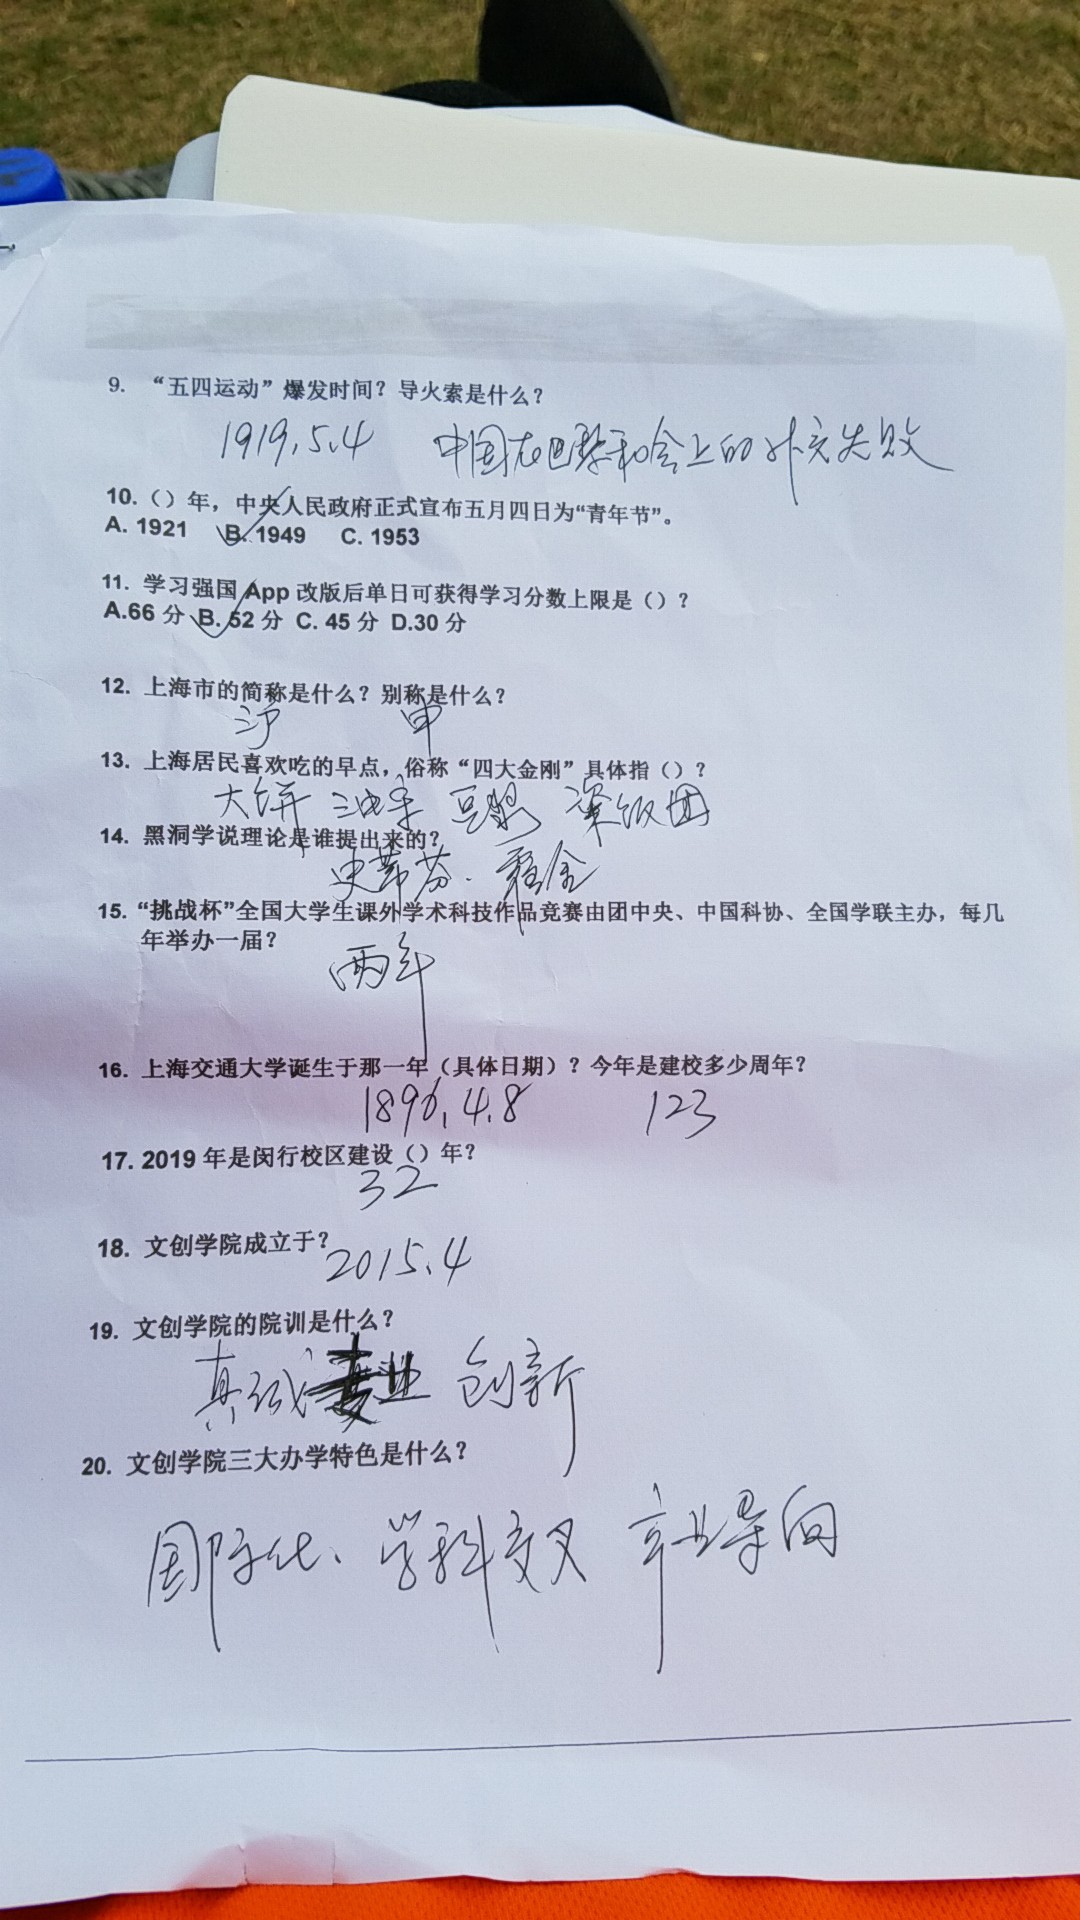 9. “五四运动”爆发时间？导火索是什么？
1919.5.4 中国在巴黎和会上的外交失败
10.（）年，中央人民政府正式宣布五月四日为“青年节”。
A. 1921 B. 1949 C. 1953
11. 学习强国 App 改版后单日可获得学习分数上限是（）？
A.66 分 B. 52 分 C. 45 分 D.30 分
12. 上海市的简称是什么？别称是什么？
沪 申
13. 上海居民喜欢吃的早点，俗称“四大金刚”具体指（）？
大饼 油条 豆浆 粢饭团
14. 黑洞学说理论是谁提出来的？
史蒂芬. 霍金
15. “挑战杯”全国大学生课外学术科技作品竞赛由团中央、中国科协、全国学联主办，每几
年举办一届？
两年
16. 上海交通大学诞生于那一年（具体日期）？今年是建校多少周年？
1896.4.8 123
17. 2019 年是闵行校区建设（）年？
32
18. 文创学院成立于？
2015.4
19. 文创学院的院训是什么？
真诚 业 创新
20. 文创学院三大办学特色是什么？
国际化、学科交叉 产业导向